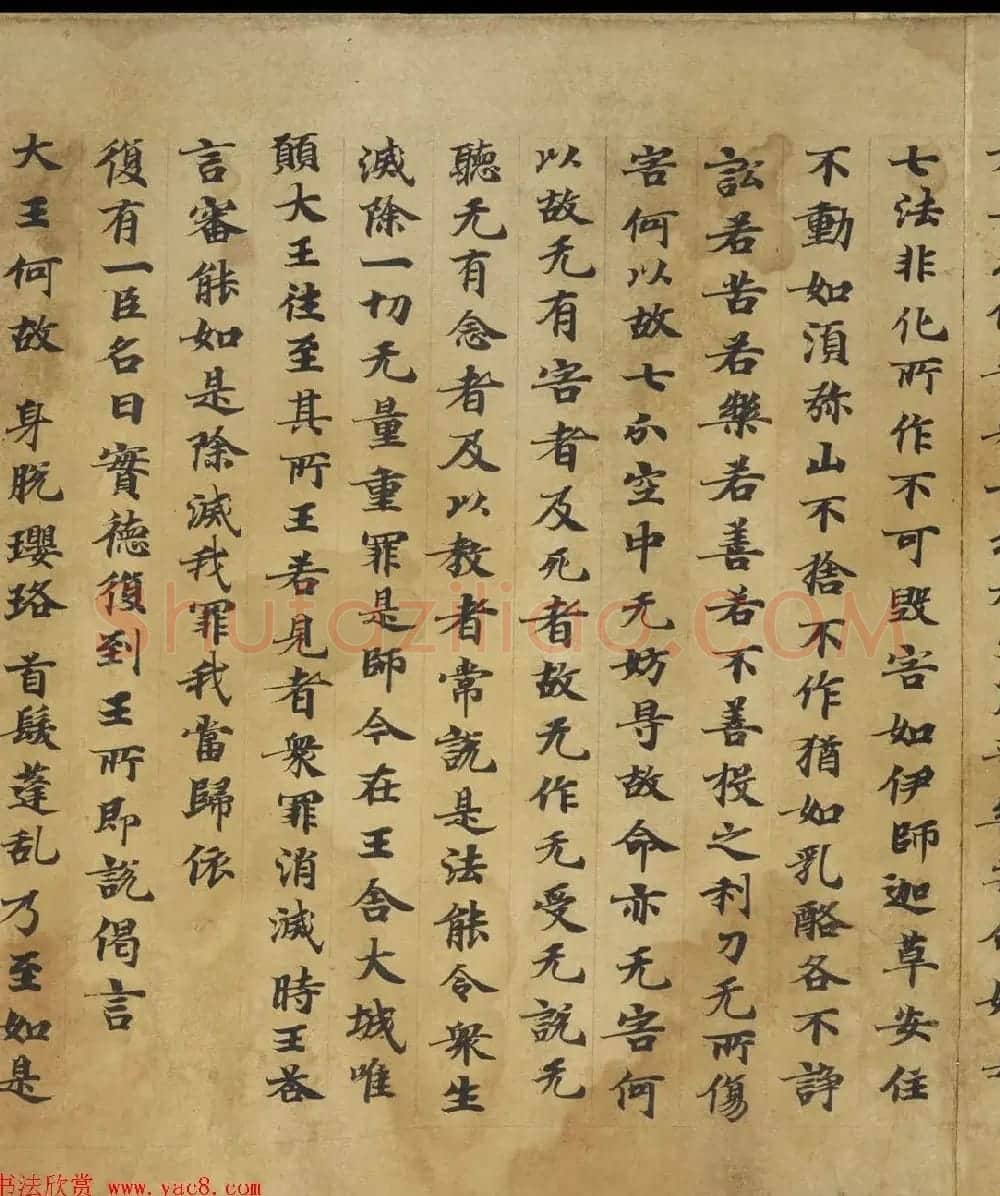 七法非化所作不可毀害如伊師迦草安住
不動如湏弥山不捨不作猶如乳酪各不諍
訟若苦若樂若善若不善投之利刀无所傷
害何以故七分空中无妨㝵故命亦无害何
以故无有害者及死者故无作无受无說无
聽无有念者及以教者常說是法能令衆生
滅除一切无量重罪是師今在王舍大城唯
願大王往至其所王若見者衆罪消滅時王荅
言審能如是除滅我罪我當歸依
復有一臣名曰實德復到王所即說偈言
大王何故 身脫瓔珞 首髮蓬乱 乃至如是
Shufaziliao.COM
书法欣赏 www.yac8.com